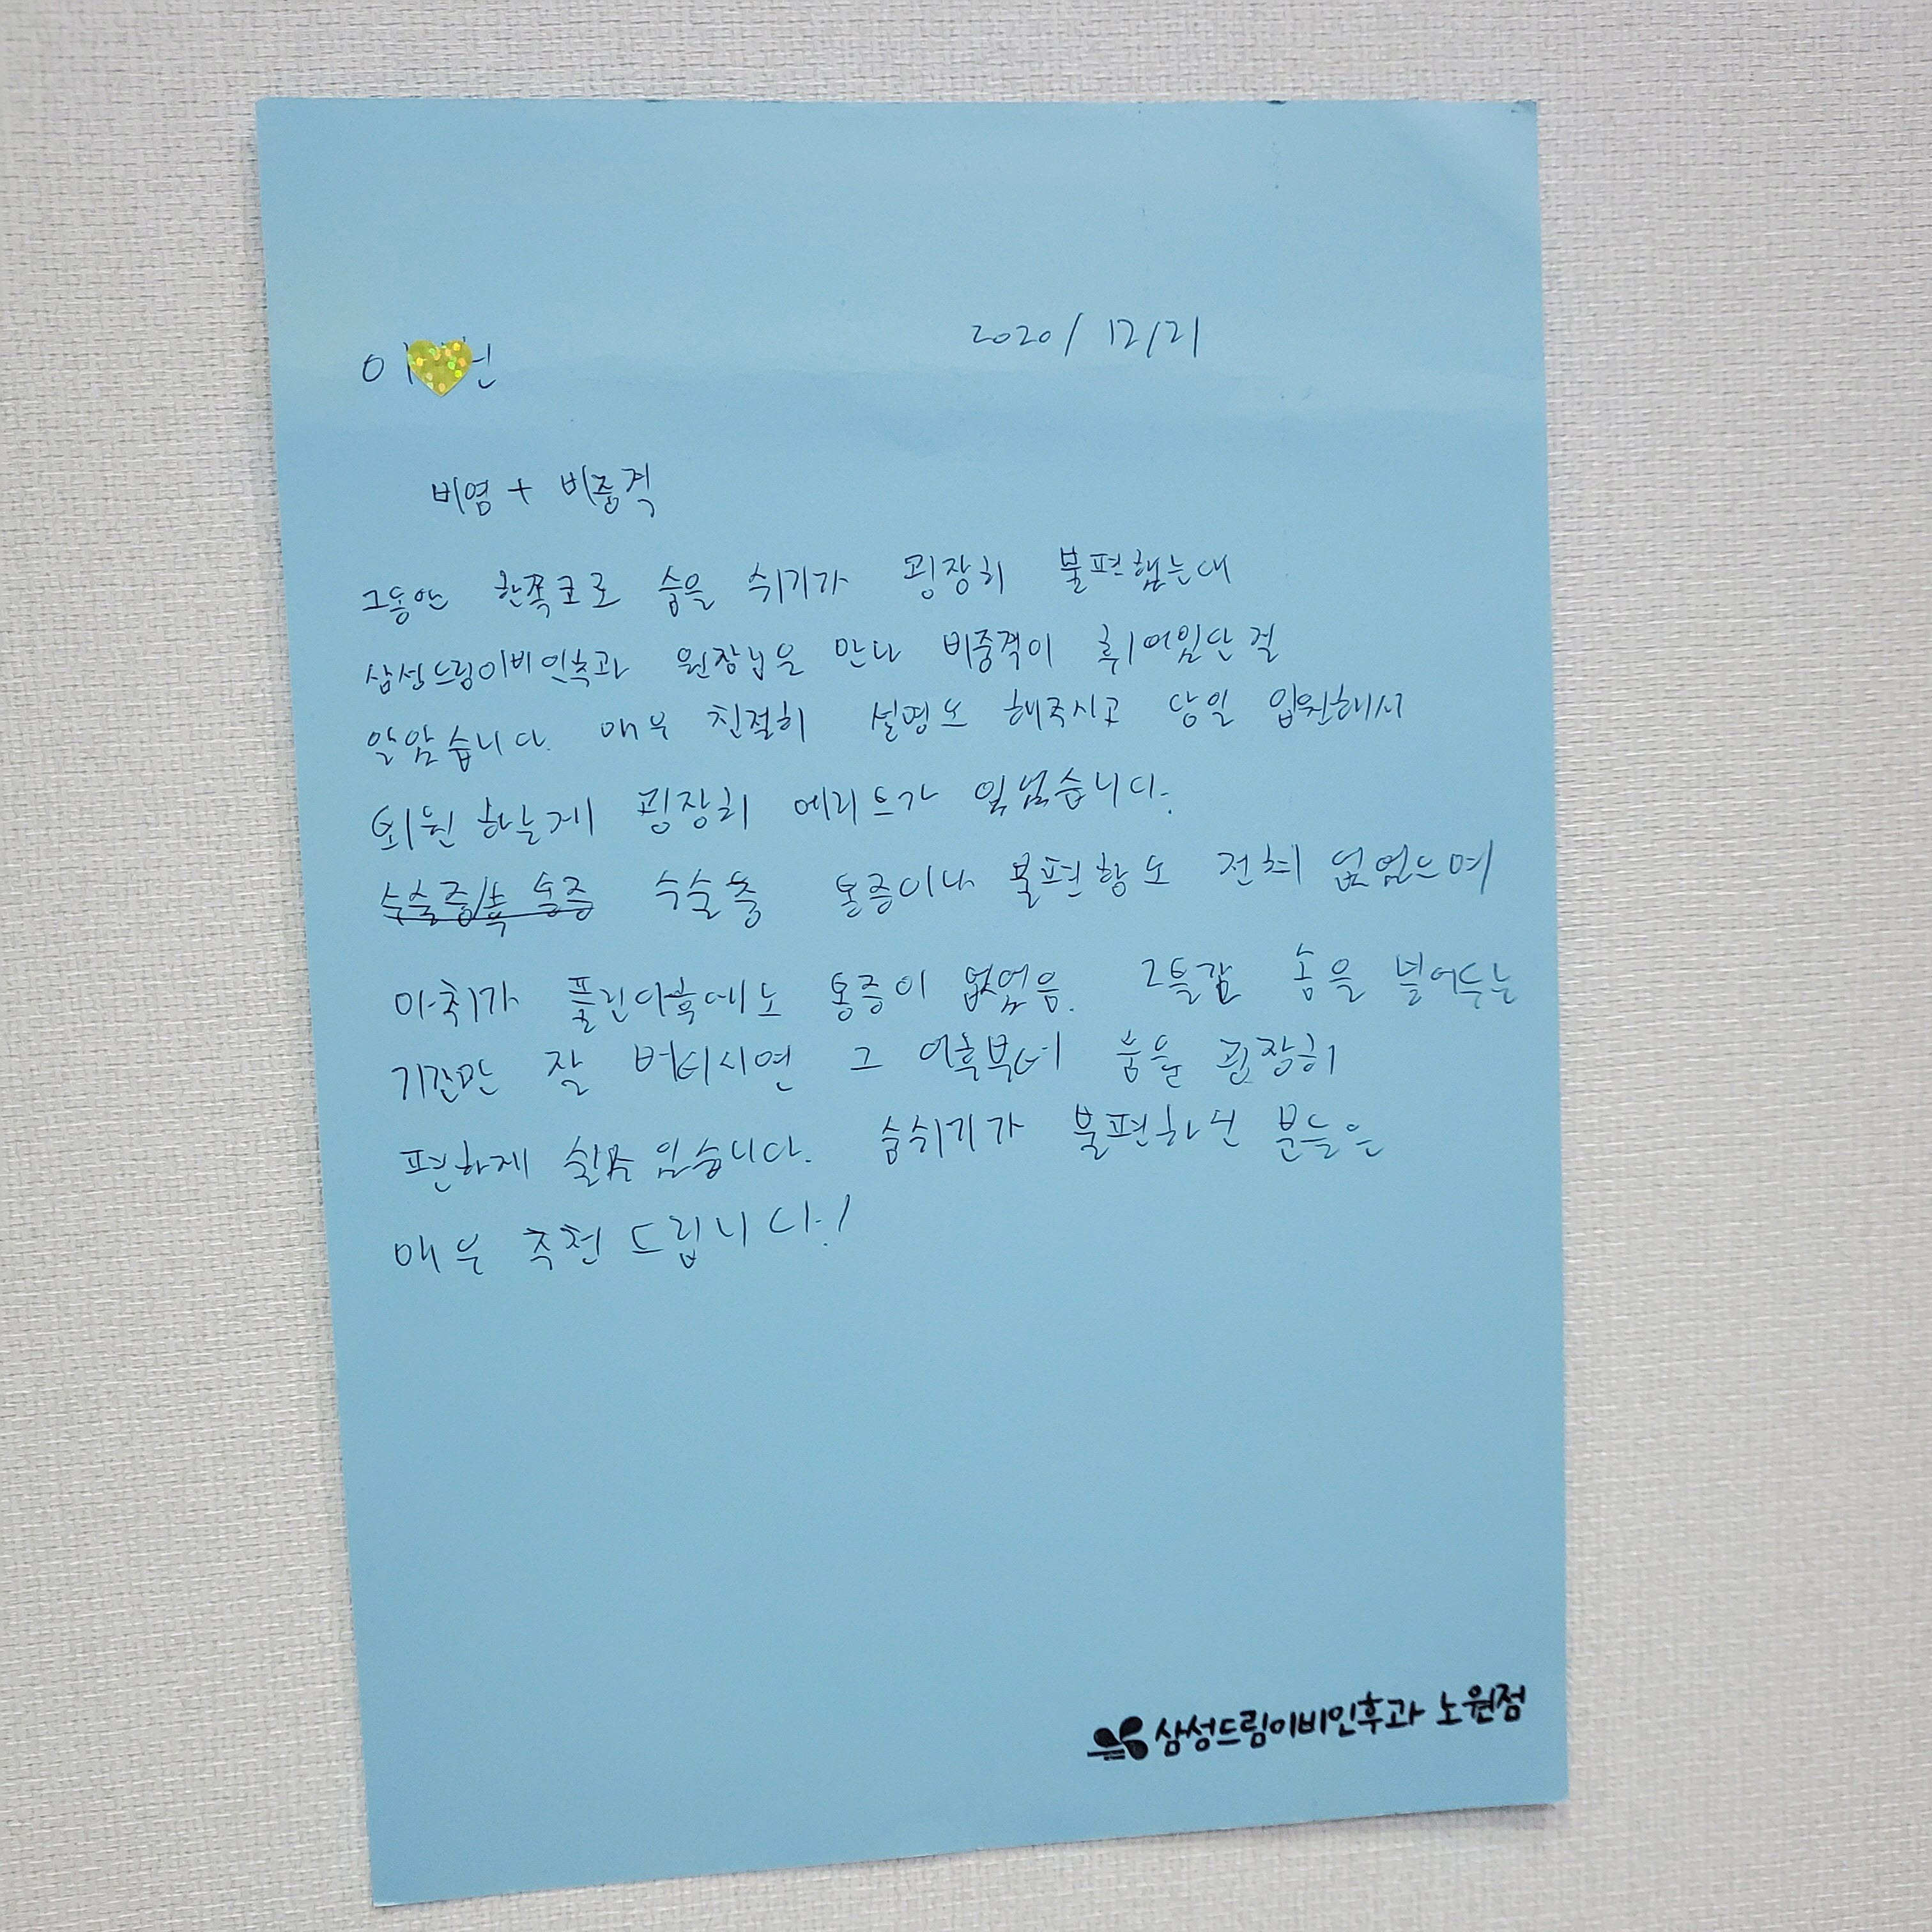 2020/12/21
이
비염 + 비중격
그동안 한쪽코로 숨을 쉬기가 굉장히 불편했는대
삼성드림이비인후과 원장님을 만나 비중격이 휘어있단걸
알았습니다. 매우 친절히 설명도 해주시고 당일 입원해서
퇴원 하는게 굉장히 메리트가 있었습니다.
수술중/후 통증 수술중 통증이나 불편함도 전혀 없었으며
마취가 풀린다음에도 통증이 없었음. 솜을 넣어두는
기간만 잘 버티시면 그 이후부터 숨을 굉장히
편하게 쉴수 있습니다. 숨쉬기가 불편하신 분들은
매우 추천 드립니다.!
삼성드림이비인후과 노원점